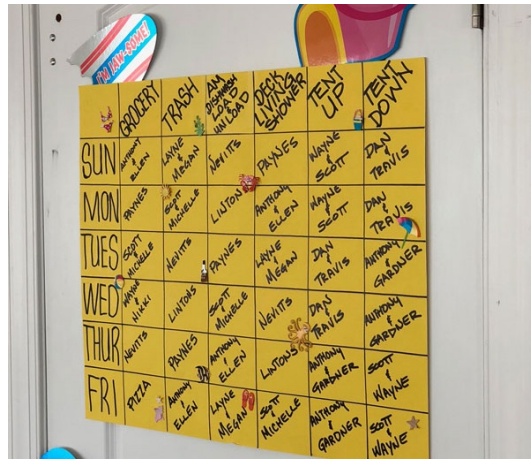 I'M JAW-SOME!
GROCERY
TRASH
AM
DISHWASH
LOAD &
UNLOAD
DECK
LIVING
SHOWER
TENT
UP
TENT
DOWN
SUN
ANTHONY
&
ELLEN
LAYNE
&
MEGAN
NEVITS
PAYNES
WAYNE
&
SCOTT
DAN
&
TRAVIS
MON
PAYNES
SCOTT
&
MICHELLE
LINTONS
ANTHONY
&
ELLEN
WAYNE
&
SCOTT
DAN
&
TRAVIS
TUES
SCOTT
MICHELLE
NEVITS
PAYNES
LAYNE
&
MEGAN
DAN
&
TRAVIS
ANTHONY
&
GARDNER
WED
WAYNE
&
NIKKI
LINTONS
SCOTT
&
MICHELLE
NEVITS
DAN
&
TRAVIS
ANTHONY
&
GARDNER
THUR
NEVITS
PAYNES
ANTHONY
&
ELLEN
LINTONS
ANTHONY
&
GARDNER
SCOTT
&
WAYNE
FRI
PIZZA
ANTHONY
&
ELLEN
LAYNE
&
MEGAN
SCOTT
&
MICHELLE
ANTHONY
&
GARDNER
SCOTT
&
WAYNE